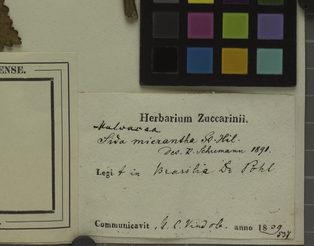 ENSE.
Herbarium Zuccarinii.
Malvacea
Sida micrantha St. Hil.
Des. K. Schumann 1891.
Legit in Brasilia Dr Pohl
Communicavit M. C. Vindob. anno 1839